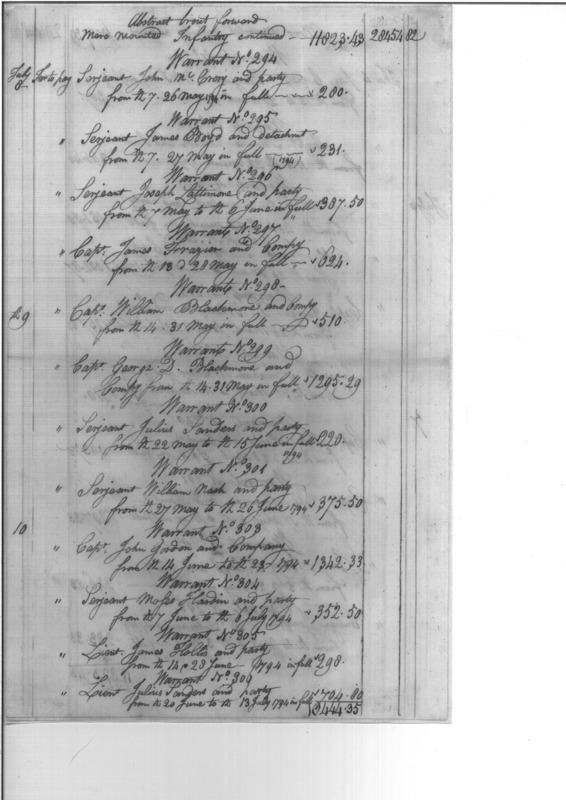 Abstract brout forward
Mero mounted Infantry continued 11823.43 28454 82
Warrant No. 294
July For to pay Serjeant John McCrory and party
from the 7. 26 May 1794 in full 280.
Warrant No 295
" Serjeant James Boyd and detachmt
from the 7. 27 May in full (1794) 231.
Warrant No 296
" Serjeant Joseph Lattimore and party
from the 7 May to the 6 June in full 387.50
Warrants No. 297
" Capt. James Frazier and Compy
from the 13 28 May in full 624.
Warrants No. 298
29 " Capt. William Blackmore and Compy
from the 14. 31 May in full 510
Warrants No 299
" Capt. George D. Blackmore and
Compy from the 14. 31 May in full 1295.29
Warrant No. 300
" Serjeant Julius Sanders and party
from the 22 May to the 15 June in full 220.
1794
Warrant No. 301
" Serjeant William Nash and party
from the 27 May to the 26 June 1794 375.50
10
Warrant No. 303
" Capt. John Gordon and Company
from the 14 June to the 23 1794 1342.33
Warrant No 304
" Serjeant Moses Hardin and party
from the June to the 6 July 1794 352.50
Warrant No. 305
" Lieut. James Hollis and party
from the 14 28 June 1794 in full 298.
Warrant No. 309
" Lieut Julius Sanders and party 704.80
from the 20 June to the 13 July 1794 in full
444.35